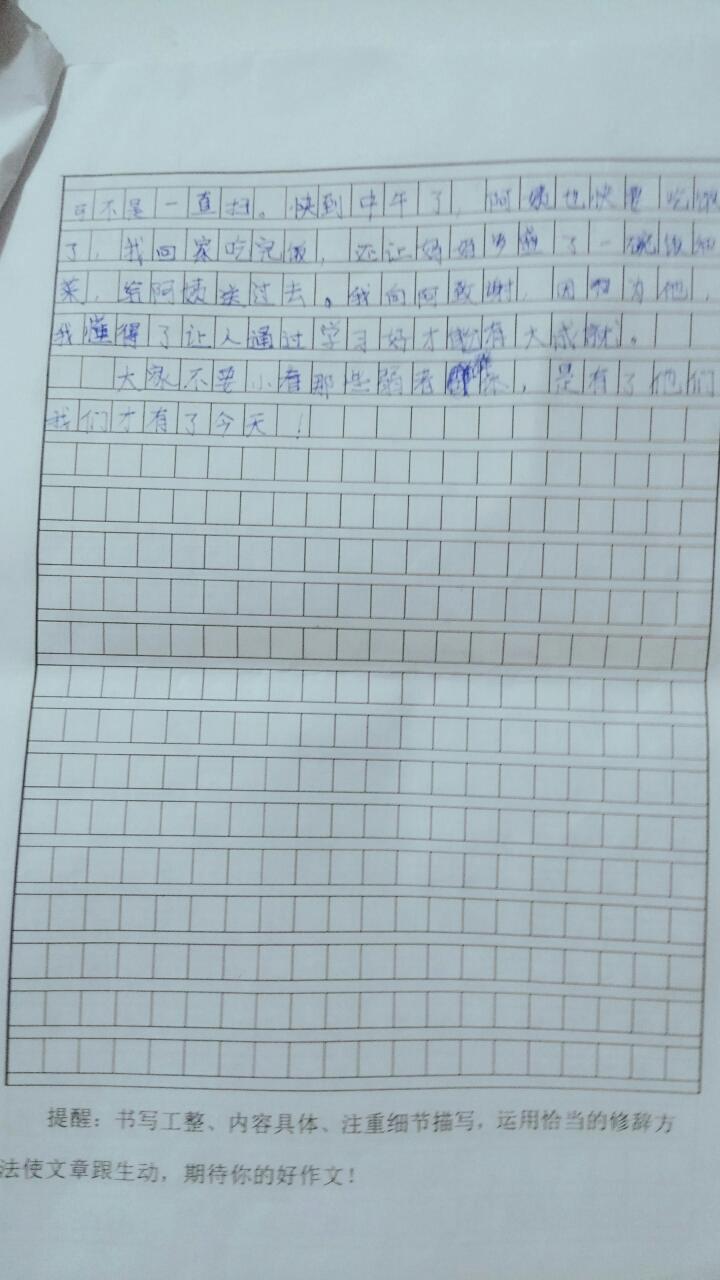 可不是一直扫。快到中午了,阿姨也快要吃饭
了,我回家吃完饭,还让妈妈多盛了一碗饭和
菜,给阿姨送过去。我向阿致谢,因为他,
我懂得了让人通过学习好才能有大成就。
大家不要小看那些弱者,是有了他们
我们才有了今天!
提醒:书写工整、内容具体、注重细节描写,运用恰当的修辞方
法使文章跟生动,期待你的好作文!